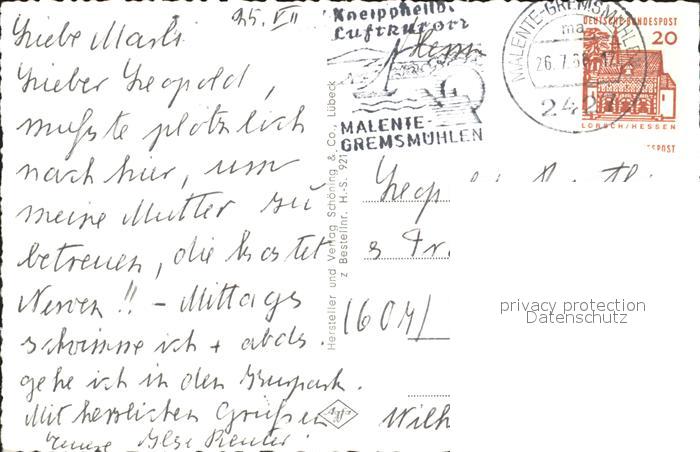 25. VII
Liebe Marli
Lieber Leopold,
mußte plötzlich
nach hier, um
meine Mutter zu
betreuen, die kostet
Nerven!! - Mittags
schwimme ich + abds.
gehe ich in den Kurpark.
Mit herzlichen Grüßen
Ilse Reuter
Kneippheilb.
Luftkurort
MALENTE-
GREMSMÜHLEN
MALENTE-GREMSMÜHLEN
26.7.66
2427
DEUTSCHE BUNDESPOST
20
LORSCH/HESSEN
Hersteller und Verlag Schöning & Co., Lübeck
z Bestellnr. H.-S. 921
Herrn
Agfa
privacy protection
Datenschutz